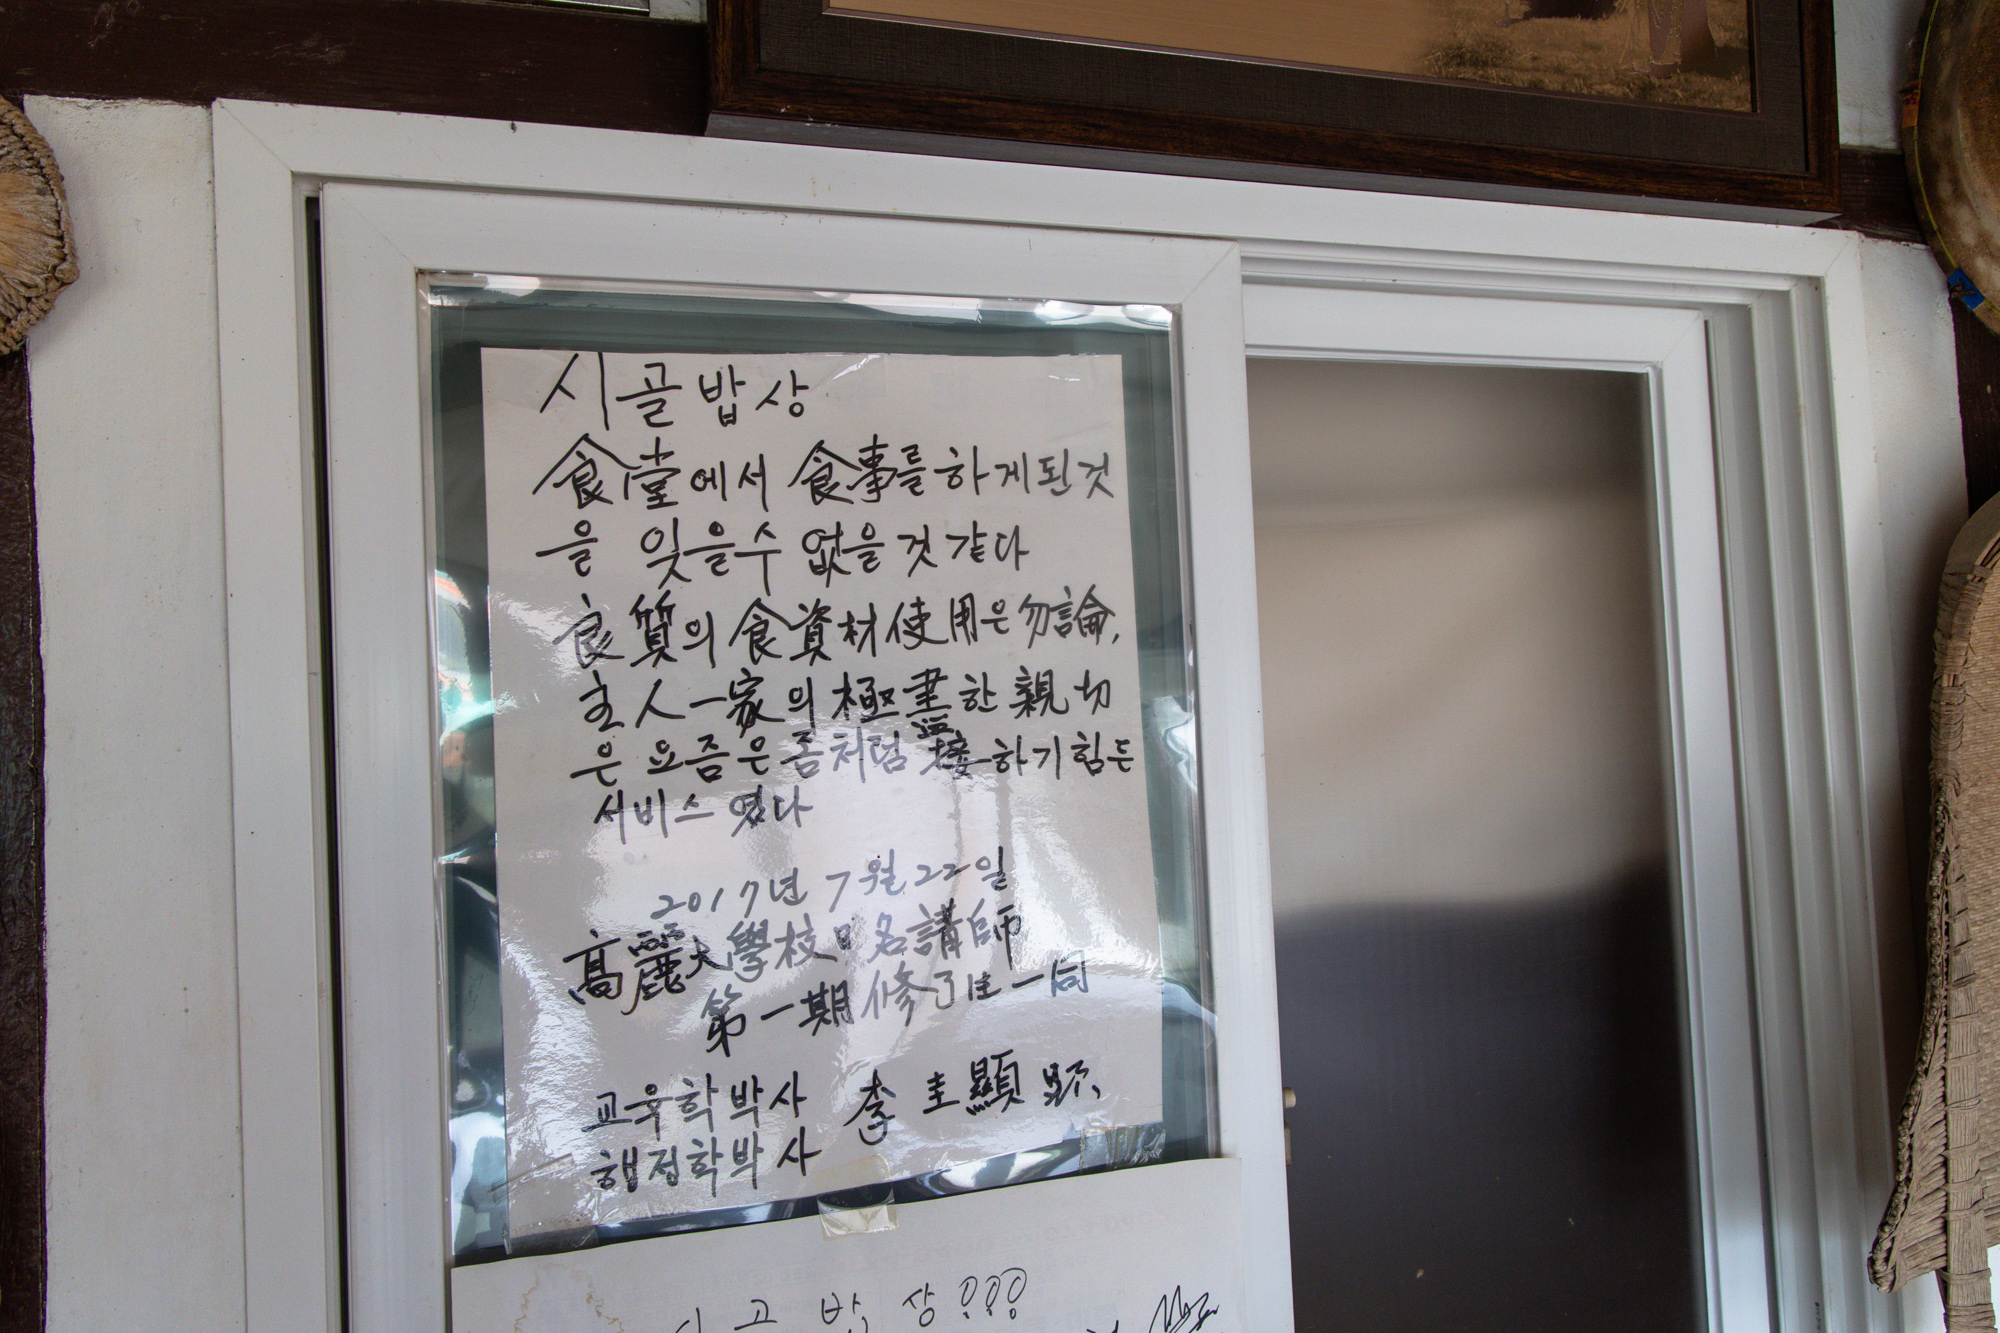 시골밥상
食堂에서 食事를 하게된것
을 잊을수 없을것 같다
良質의 食資材 使用은 勿論,
主人一家의 極盡한 親切
은 요즘은 좀처럼 接하기힘든
서비스였다
2017년 7월 22일
高麗大學校 名講師
第一期 修了生 一同
교육학박사 李圭顯
행정학박사
시골밥상???